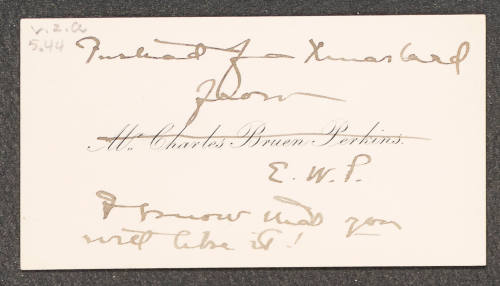 v.2.a
5.44
Instead of a Xmas Card
from
Mr. Charles Bruen Perkins.
E. W. P.
I know that you
will like it!